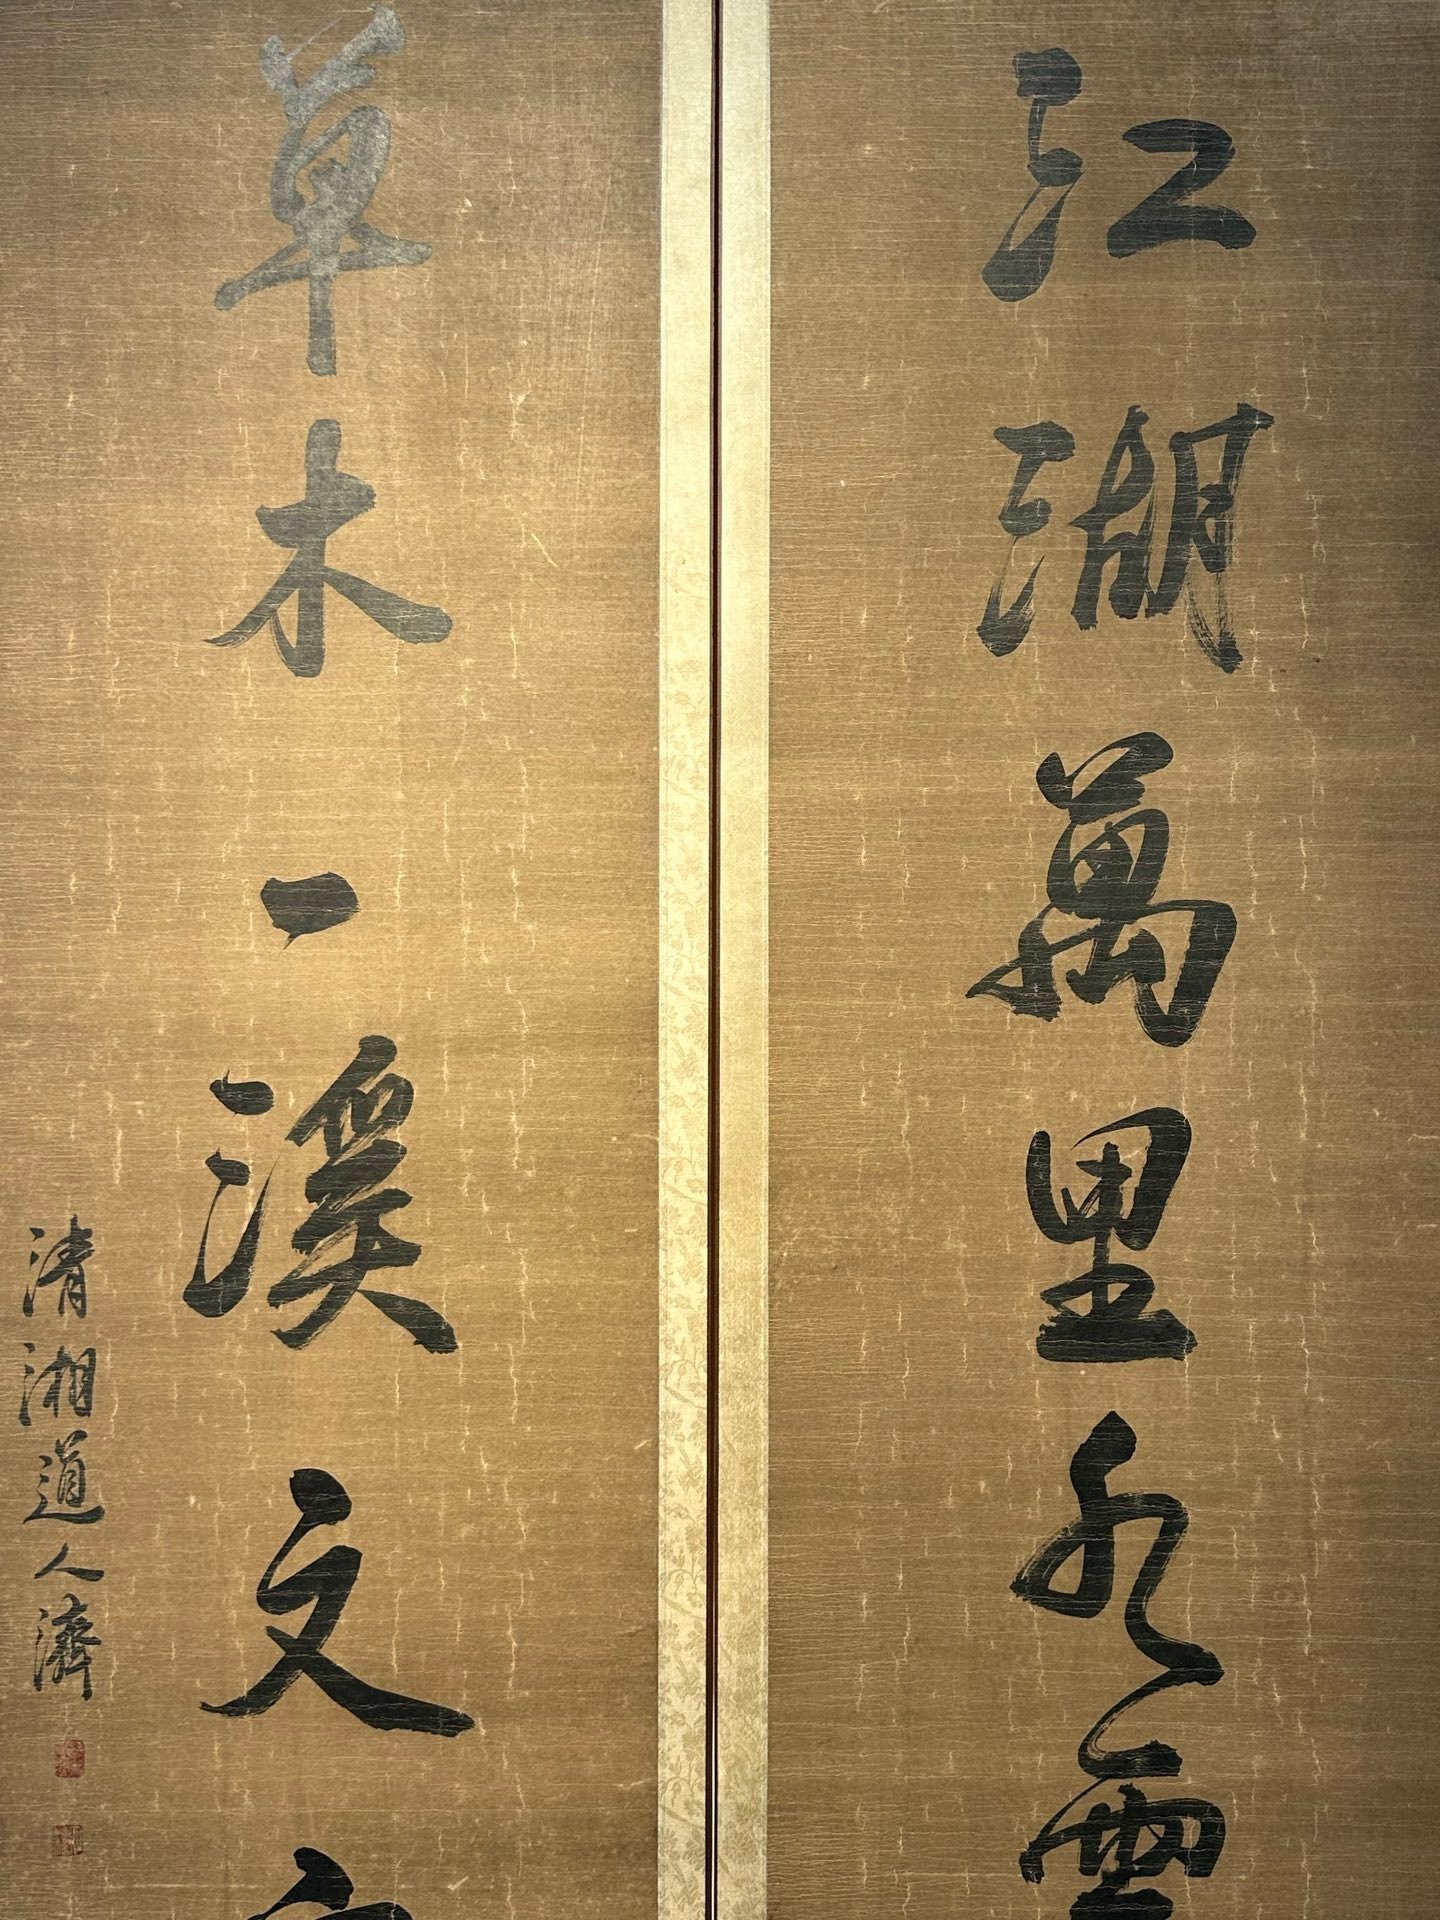 江湖萬里水雲
草木一溪文
清湘道人濟